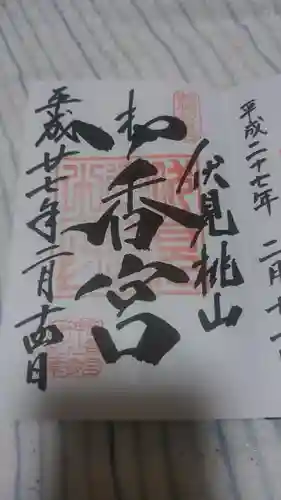 平成二十七年 二月十一
伏見桃山
御香宮
平成廿七年二月十四日